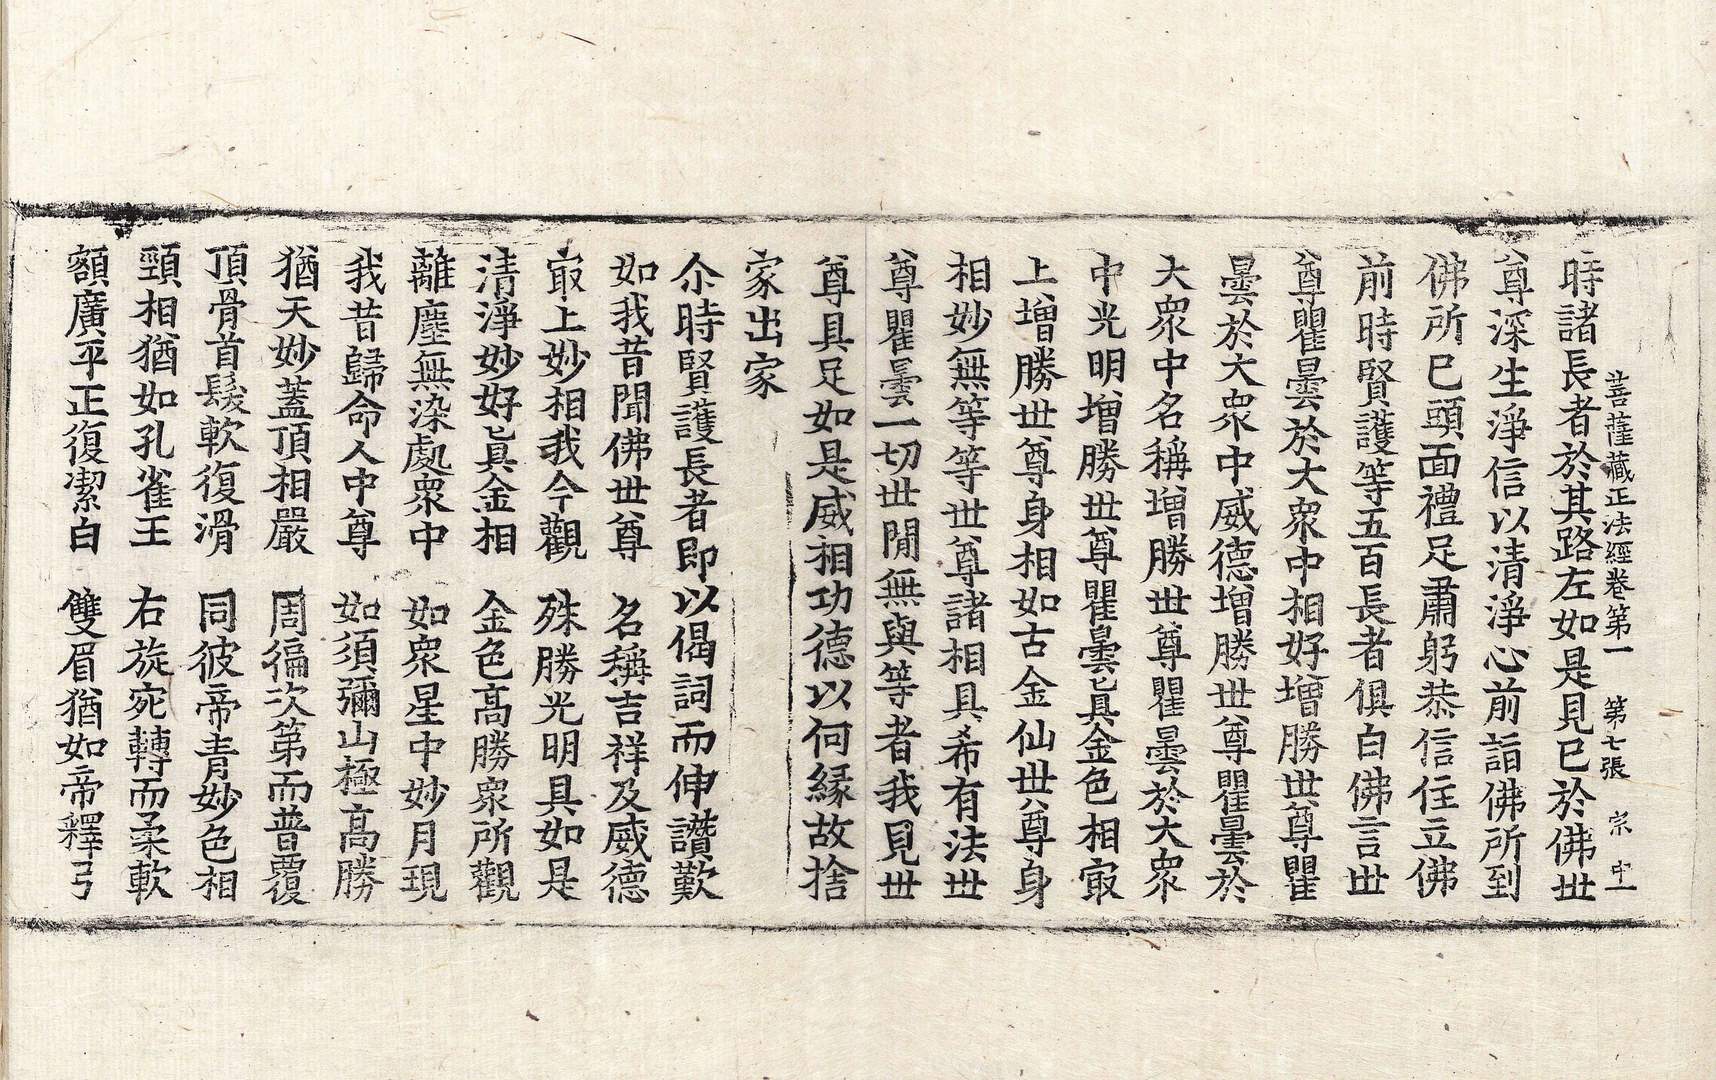 菩薩藏正法經卷第一　第七張　宗　中一
時諸長者於其路左如是見已於佛世
尊深生淨信以清淨心前詣佛所到
佛所已頭面禮足肅躬恭信住立佛
前時賢護等五百長者俱白佛言世
尊瞿曇於大衆中相好增勝世尊瞿
曇於大衆中威德增勝世尊瞿曇於
大衆中名稱增勝世尊瞿曇於大衆
中光明增勝世尊瞿曇真金色相㝡
上增勝世尊身相如古金仙世尊身
相妙無等等世尊諸相具希有法世
尊瞿曇一切世間無與等者我見世
尊具足如是威相功德以何緣故捨
家出家
尒時賢護長者即以偈詞而伸讚歎
如我昔聞佛世尊　名稱吉祥及威德
㝡上妙相我今觀　殊勝光明具如是
清淨妙好真金相　金色高勝衆所觀
離塵無染處衆中　如衆星中妙月現
我昔歸命人中尊　如須彌山極高勝
猶天妙蓋頂相嚴　周徧次第而普覆
頂骨首髮軟復滑　同彼帝青妙色相
頸相猶如孔雀王　右旋宛轉而柔軟
額廣平正復潔白　雙眉猶如帝釋弓